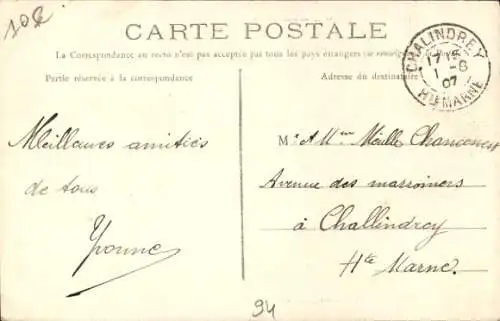 10€
CARTE POSTALE
La Correspondance au recto n'est pas acceptée par tous les pays étrangers (se renseigner à la Poste)
Partie réservée à la correspondance
Adresse du destinataire
CHALINDREY
1715
1 -8
07
HTE MARNE
Meilleures amitiés
de tous
Yvonne
Mr et Mme Méulle Chanconest
Avenue des marroniers
à Challindrey
Hte Marne.
94